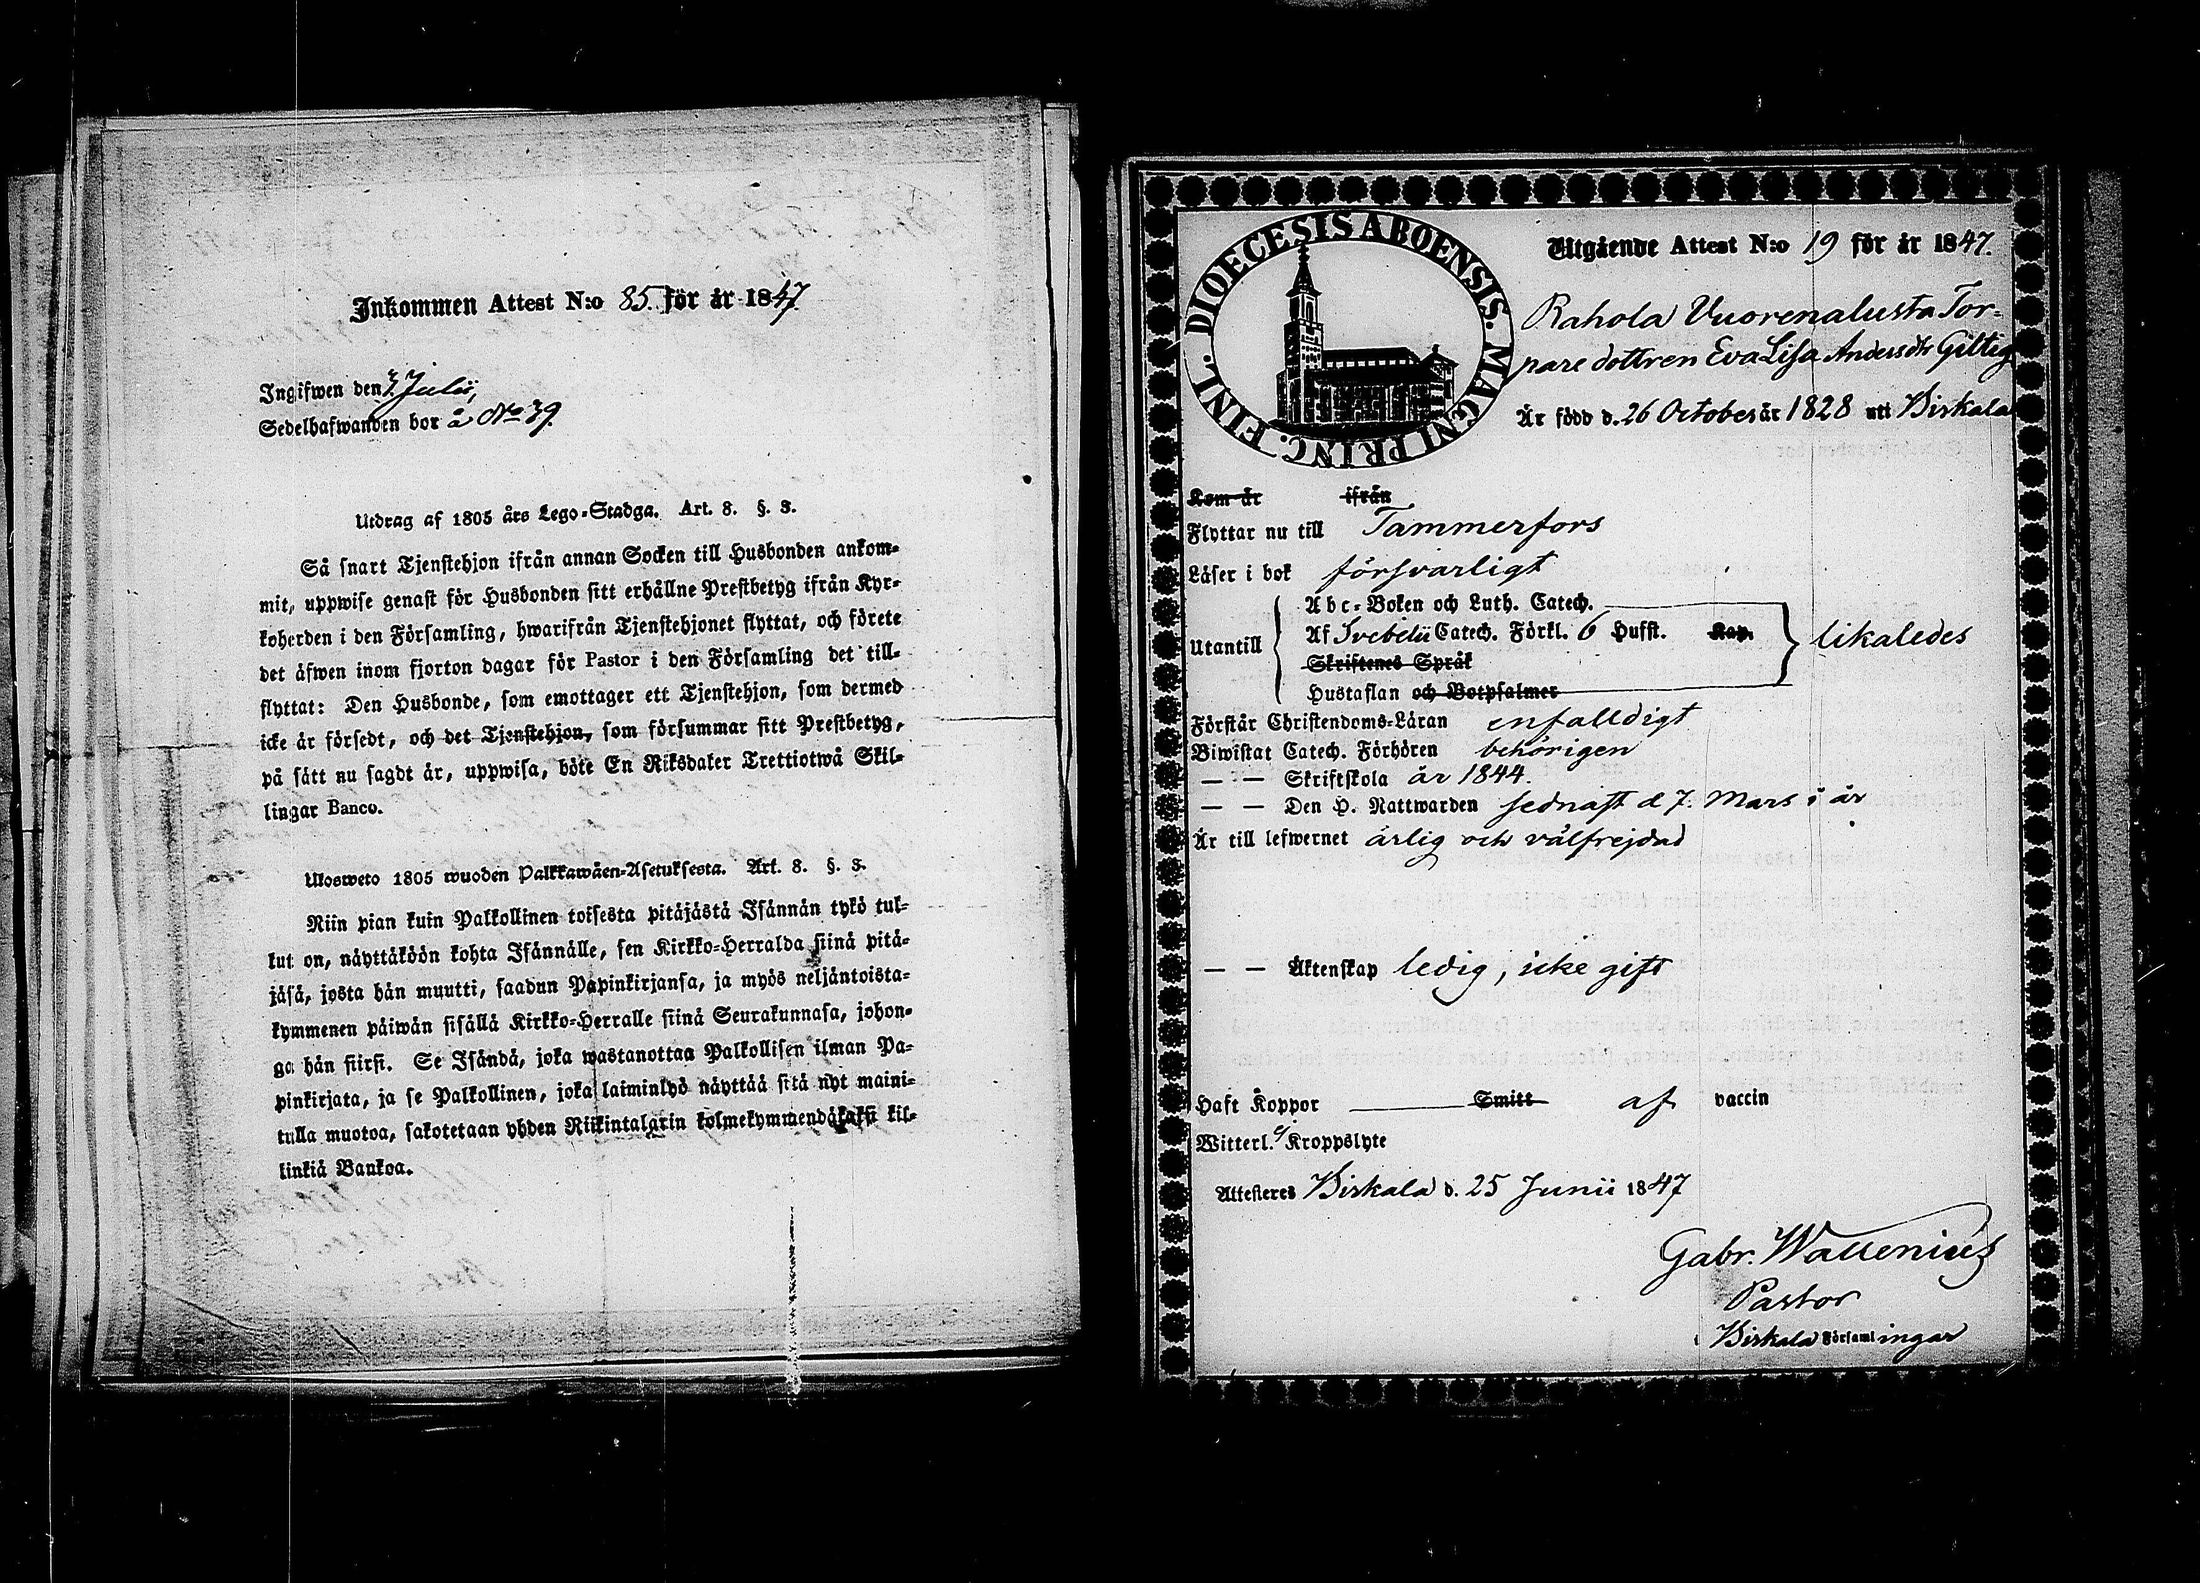 Inkommen Attest N:o 85. för år 1847.
Ingifwen den 3 Julii,
Sedelhafwanden bor å No 39.
Utdrag af 1805 års Lego-Stadga. Art. 8. §. 3.
Så snart Tjenstehjon ifrån annan Socken till Husbonden ankom-
mit, uppwise genast för Husbonden sitt erhållne Prestbetyg ifrån Kyr-
koherden i den Församling, hwarifrån Tjenstehjonet flyttat, och förete
det äfwen inom fjorton dagar för Pastor i den Församling det till-
flyttat: Den Husbonde, som emottager ett Tjenstehjon, som dermed
icke är försedt, och det Tjenstehjon, som försummar sitt Prestbetyg,
på sätt nu sagdt är, uppwisa, böte En Riksdaler Trettiotwå Skil-
lingar Banco.
Ulosweto 1805 wuoden Palkkawäen-Asetuksesta. Art. 8. §. 3.
Niin pian kuin Palkollinen toisesta pitäjästä Isännän tykö tul-
lut on, näyttäköön kohta Isännälle, sen Kirkko-Herralda siinä pitä-
jäsä, josta hän muutti, saadun Papinkirjansa, ja myös neljäntoista-
kymmenen päiwän sisällä Kirkko-Herralle siinä Seurakunnasa, johon-
ga hän siirsi. Se Isändä, joka wastanottaa Palkollisen ilman Pa-
pinkirjata, ja se Palkollinen, joka laiminlyö näyttää sitä nyt maini-
tulla muotoa, sakotetaan yhden Riikintalarin kolmekymmendäkaksi kil-
linkiä Bankoa.
DIOECESIS ABOENSIS. MAGNI PRINC. FINL.
Utgående Attest N:o 19 för år 1847.
Rahola Vuorenalusta Tor-
pare dottren Eva Lisa Andersdr Giltig
Är född d. 26 October år 1828 uti Birkala
Kom år ifrån
Flyttar nu till Tammerfors
Läser i bok försvarligt
Utantill
Abc-Boken och Luth. Catech.
Af Svebelii Catech. Förkl. 6 Hufst. Kap. likaledes
Skriftenes Språk
Hustaflan och Botpsalmer
Förstår Christendoms-Läran enfalldigt
Biwistat Catech. Förhören behörigen
— — Skriftskola år 1844.
— — Den H. Nattwarden sednast d 7. Mars i år
Är till lefwernet ärlig och välfrejdad
— — Äktenskap ledig, icke gift
Haft Koppor Smitt af vaccin
Witterl. Kroppslyte
Attesteres Birkala d. 25 Junii 1847
Gabr. Wallenius
Pastor
Birkala Församlingar